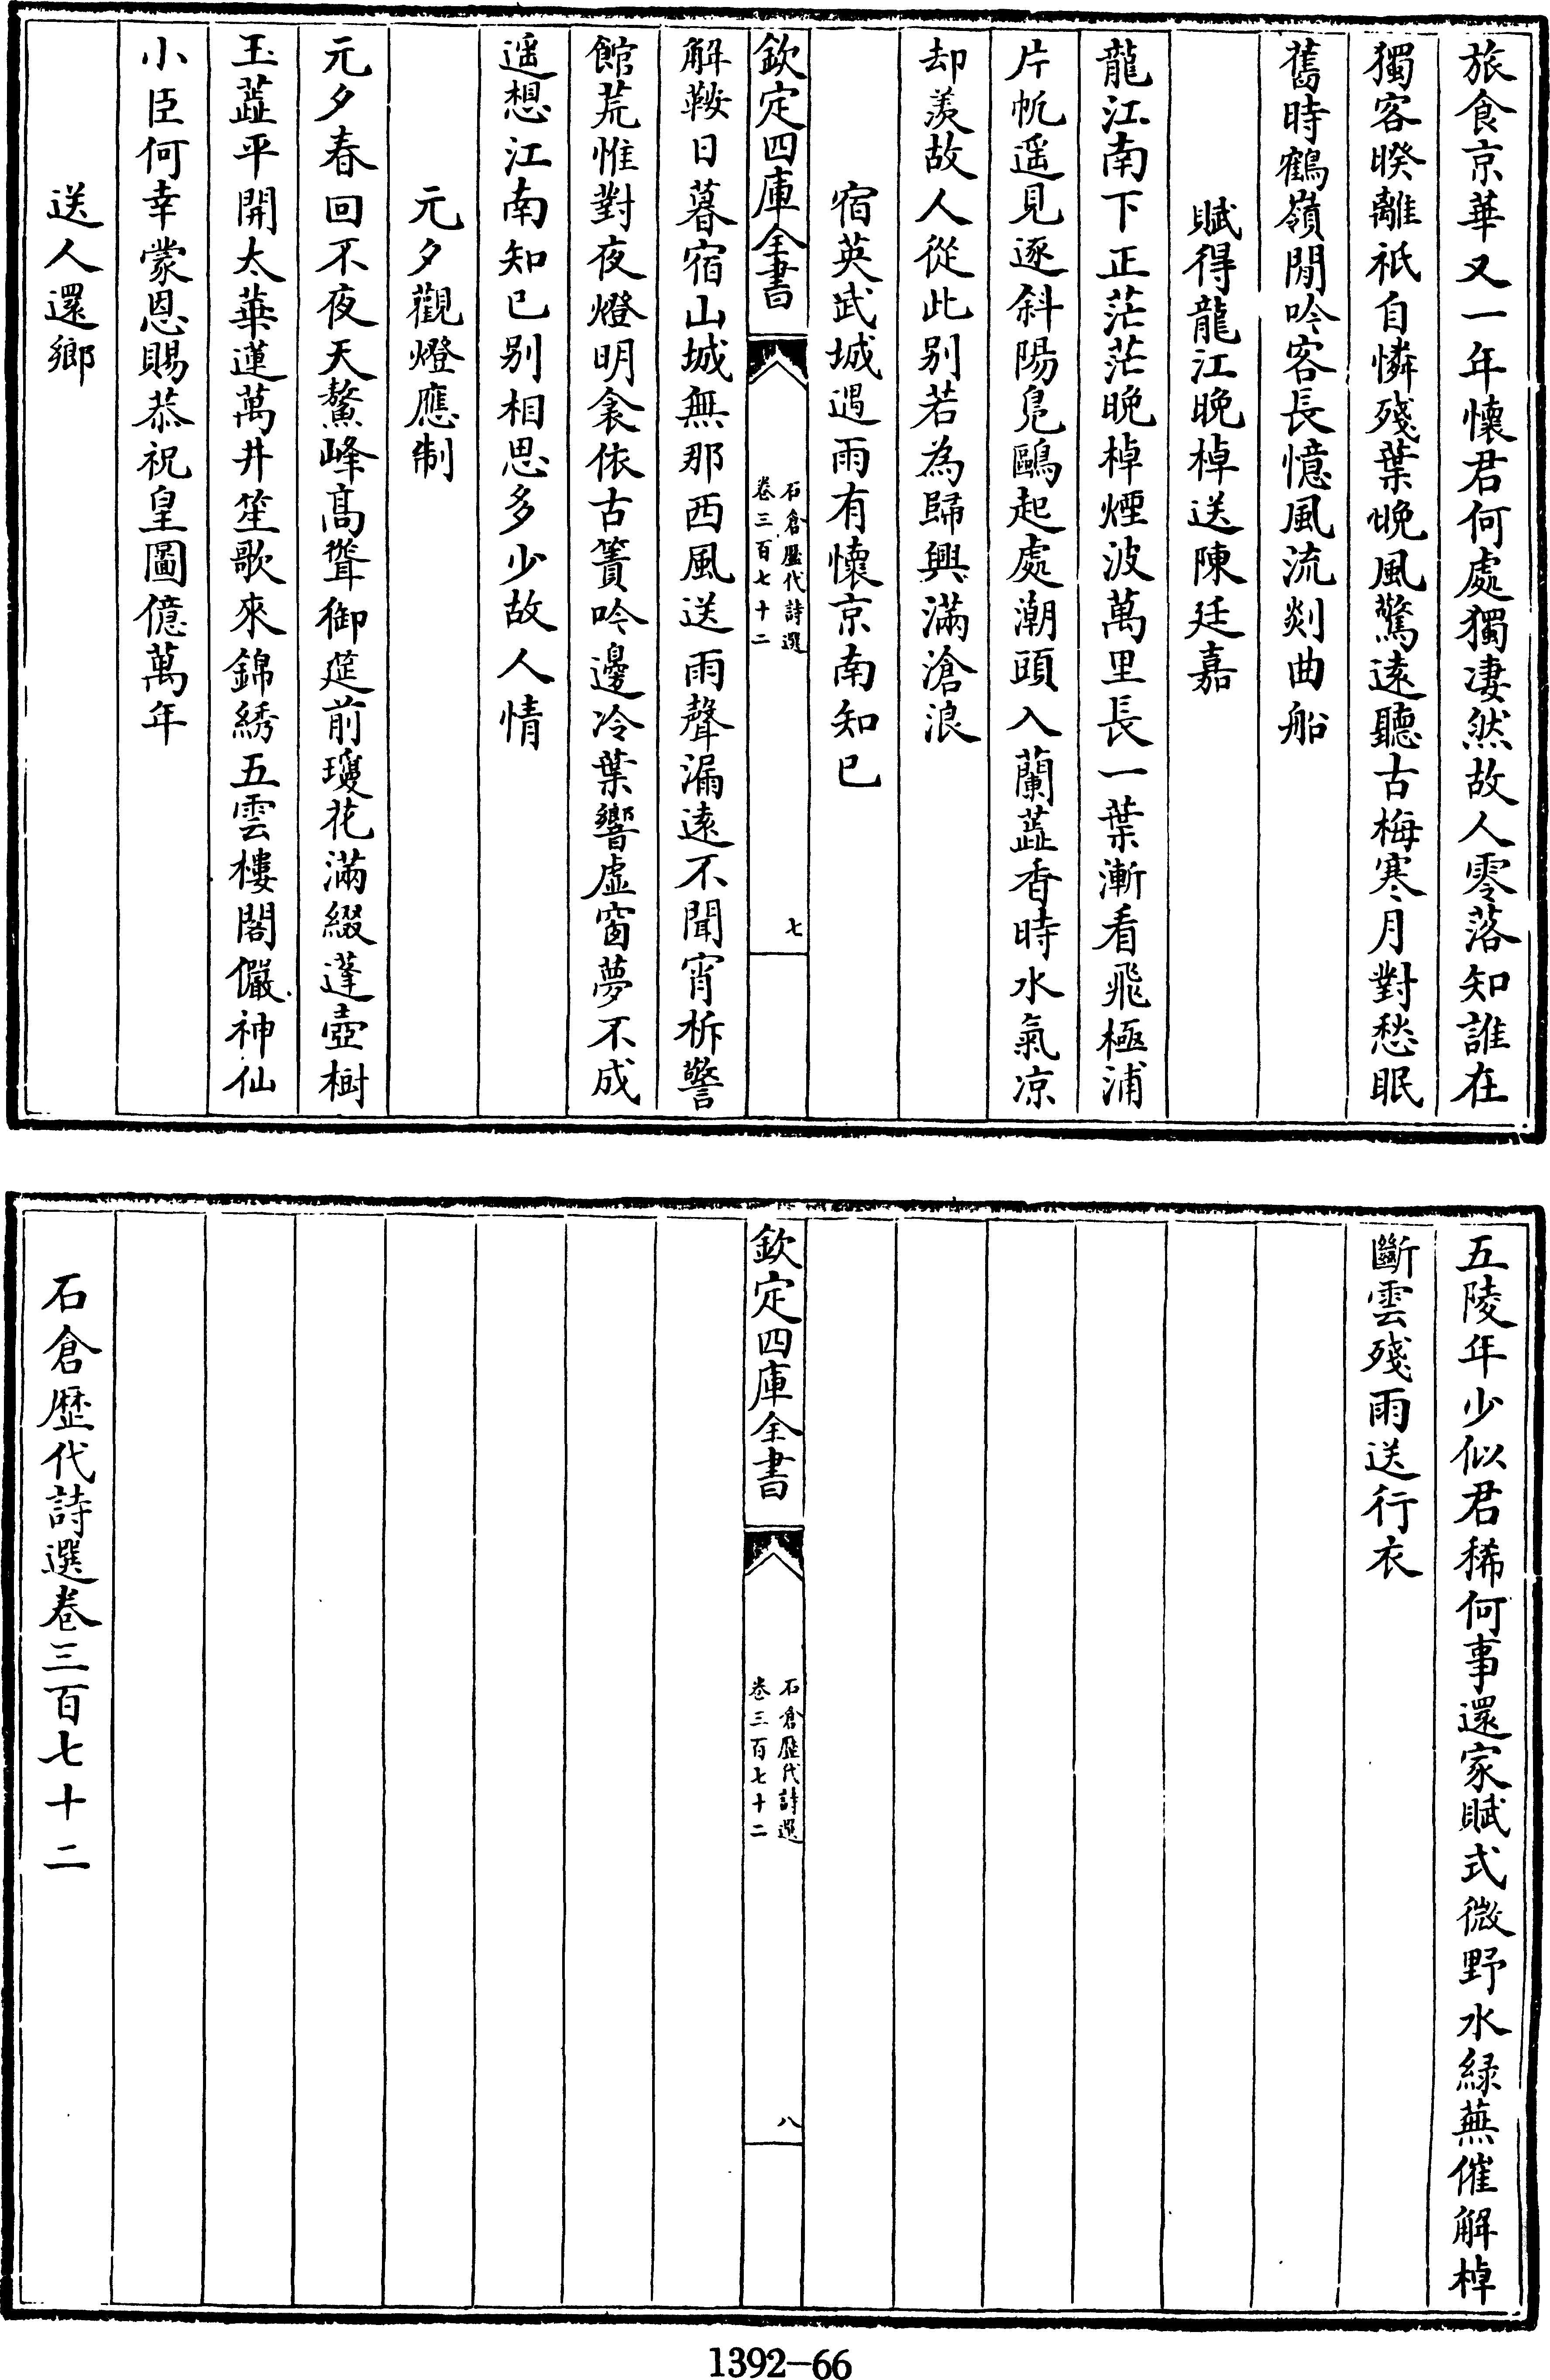 旅食京華又一年懷君何處獨凄然故人零落知誰在
獨客暌離祇自憐殘葉晚風驚遠聽古梅寒月對愁眠
舊時鶴嶺閒吟客長憶風流剡曲船
賦得龍江晚棹送陳廷嘉
龍江南下正茫茫晚棹煙波萬里長一葉漸看飛極浦
片帆遥見逐斜陽鳧鷗起處潮頭入蘭蕋香時水氣凉
却羨故人從此别若為歸興滿滄浪
宿英武城遇雨有懷京南知已
欽定四庫全書
石倉歷代詩選
卷三百七十二
七
解鞍日暮宿山城無那西風送雨聲漏遠不聞宵柝警
館荒惟對夜燈明衾依古簀吟邊冷葉響虛窗夢不成
遥想江南知已别相思多少故人情
元夕觀燈應制
元夕春回不夜天鰲峰高聳御筵前瓊花滿綴蓬壺樹
玉蕋平開太華蓮萬井笙歌來錦綉五雲樓閣儼神仙
小臣何幸蒙恩賜恭祝皇圖億萬年
送人還鄉
五陵年少似君稀何事還家賦式微野水緑蕪催解棹
斷雲殘雨送行衣
欽定四庫全書
石倉歷代詩選
卷三百七十二
八
石倉歷代詩選卷三百七十二
1392-66